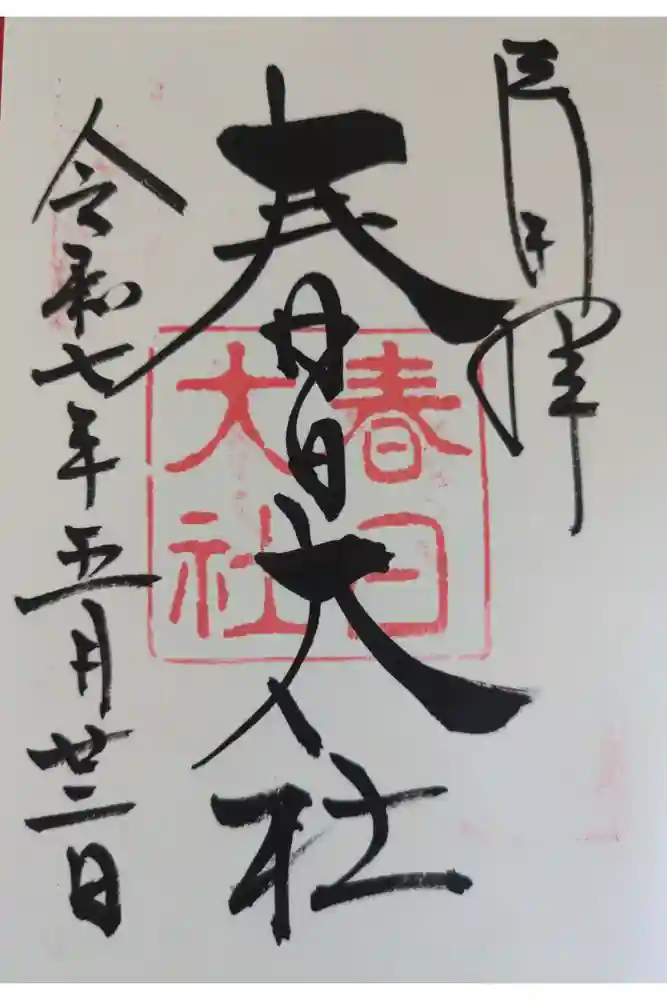 春日大社
春日
大社
令和七年五月廿二日